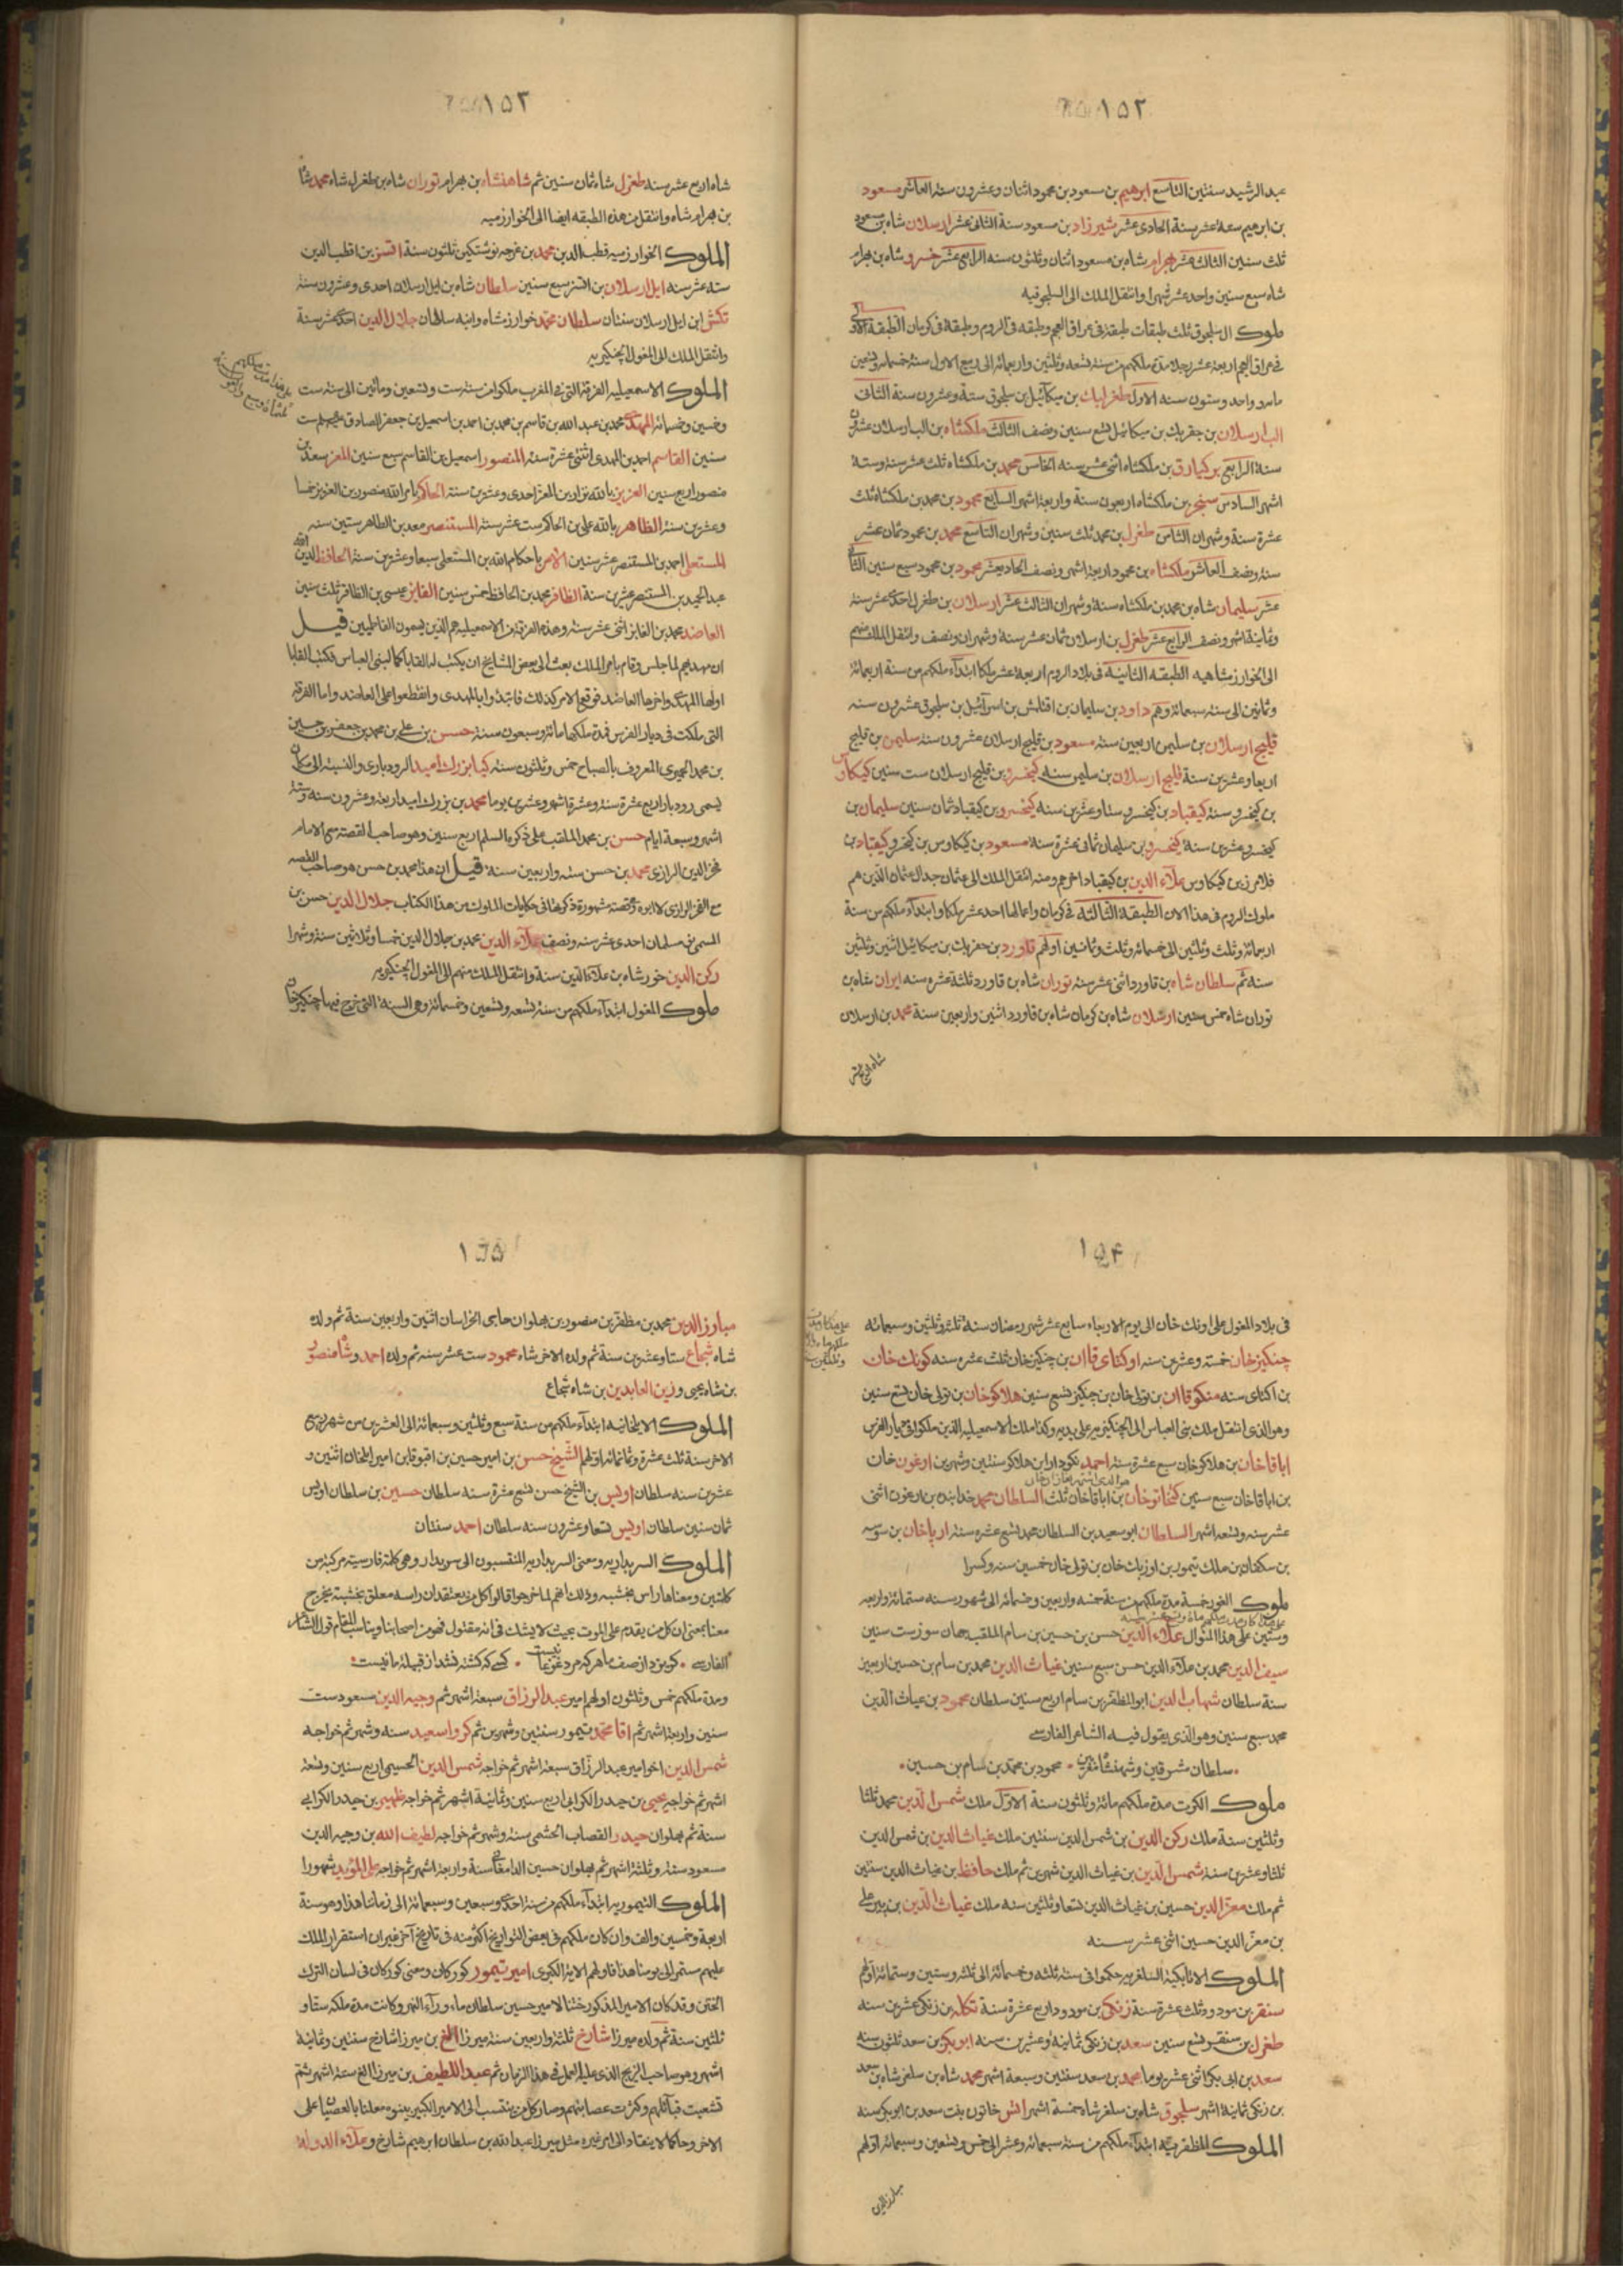 ١٥٢
عبد الرشيد سنتين التاسع ابرهيم بن مسعود بن محمود اثنان وعشرون سنة العاشر مسعود
بن ابرهيم ستة عشر سنة الحادى عشر شيرزاد بن مسعود سنة الثانى عشر ارسلان شاه بن مسعود
ثلث سنين الثالث عشر بهرام شاه بن مسعود اثنان وثلثون سنه الرابع عشر خسرو شاه بن بهرام
شاه سبع سنين واحد عشر شهرا وانتقل الملك الى السلجوقيه
ملوك ال سلجوق ثلث طبقات طبقة فى عراق العجم وطبقه فى الروم وطبقة فى كرمان الطبقة الاولى
فى عراق العجم اربعة عشر رجلا مدة ملكهم من سنة تسعة وثلثين واربعمائه الى ربيع الاول سنة خمسمائه وتسعين
مائه واحد وستون سنه الاول طغرلبك بن ميكائيل بن سلجوق ستة وعشرون سنة الثانى
الب ارسلان بن جقربك بن ميكائيل تسع سنين ونصف الثالث ملكشاه بن الب ارسلان عشرون
سنة الرابع بركيارق بن ملكشاه اثنى عشر سنه الخامس محمد بن ملكشاه ثلث عشر سنه وستة
اشهر السادس سنجر بن ملكشاه اربعون سنة واربعة اشهر السابع محمود بن محمد بن ملكشاه ثلث
عشرة سنة وشهران الثامن طغرل بن محمد ثلث سنين وشهران التاسع محمد بن محمود ثمان عشر
سنة ونصف العاشر ملكشاه بن محمود اربعة اشهر ونصف الحاديعشر محمود بن محمود سبع سنين الثانى
عشر سليمان شاه بن محمد بن ملكشاه سنة وشهران الثالث عشر ارسلان بن طغرل احدى عشر سنة
وثمانية اشهر ونصف الرابع عشر طغرل بن ارسلان ثمان عشر سنة وشهران ونصف وانتقل الملك منهم
الى الخوارزمشاهيه الطبقه الثانية فى بلاد الروم اربعة عشر ملكا ابتداء ملكهم من سنة اربعمائة
وثمانين الى سنة سبعمائة وهم داود بن سليمان بن اقتلمش بن اسرائيل بن سلجوق عشرون سنه
قليج ارسلان بن سليمن اربعين سنة مسعود بن قليج ارسلان عشرون سنة سليمن بن قليج
اربعا وعشرين سنة قليج ارسلان بن سليمن سنه كيخسرو بن قليج ارسلان ست سنين كيكاوس
بن كيخسرو سنة كيقباد بن كيخسرو ستا وعشرين سنه كيخسرو بن كيقباد ثمان سنين سليمان بن
كيخسرو عشرين سنة كيخسرو بن سليمان ثمانى عشرة سنه مسعود بن كيكاوس بن كيخسرو كيقباد بن
فلامرز بن كيكاوس علاء الدين بن كيقباد اخرهم ومنه انتقل الملك الى عثمان جد ال عثمان الذين هم
ملوك الروم فى هذا الان الطبقة الثالثه فى كرمان واعمالها احد عشر ملكا وابتداء ملكهم من سنة
اربعمائة وثلث وثلثين الى خمسمائة وثلث وثمانين اولهم قاورد بن جعربك بن ميكائيل اثنين وثلثين
سنه ثم سلطان شاه بن قاورد اثنى عشر سنة توران شاه بن قاورد ثلثة عشره سنه ايران شاه بن
توران شاه خمس سنين ارسلان شاه بن كرمان شاه بن قاورد اثنين واربعين سنة محمد بن ارسلان
شاه اربع عشر
١٥٣
شاه اربع عشر سنه طغرل شاه ثمان سنين ثم شاهنشاه بن بهرام توران شاه بن طغرل شاه محمد شاه
بن بهرام شاه وانتقل من هذه الطبقه ايضا الى الخوارزميه
الملوك الخوارزميه قطب الدين محمد بن غرجه نوشتكين ثلثون سنة اتسز بن قطب الدين
ستة عشر سنه ايل ارسلان بن اتسز سبع سنين سلطان شاه بن ايل ارسلان احدى وعشرون سنة
تكش ابن ايل ارسلان سنتان سلطان محمد خوارزمشاه وابنه سلطان جلال الدين احدى عشر سنة
وانتقل الملك الى المغول الچنكيزيه
الملوك الاسمعيليه الفرقة التى فى المغرب ملكوا من سنة ست وتسعين ومأتين الى سنة ست
وخمسين وخمسمائة المهدى محمد بن عبد الله بن قاسم بن محمد بن احمد بن اسمعيل بن جعفر الصادق ست
سنين القاسم احمد بن المهدى اثنتى عشرة سنة المنصور اسمعيل بن القاسم سبع سنين المعز سعد بن
منصور اربع سنين العزيز بالله نزار بن المعز احدى وعشرين سنة الحاكم بامر الله منصور بن العزيز خمسا
وعشرين سنة الظاهر بالله على بن الحاكم ست عشر سنة المستنصر معد بن الطاهر ستين سنه
المستعلى احمد بن المستنصر عشر سنين الامر باحكام الله بن المستعلى سبعا وعشرين سنة الحافظ لدين الله
عبد الحميد بن المستنصر عشرين سنة الظافر محمد بن الحافظ خمس سنين الفايز عيسى بن الظافر ثلث سنين
العاضد محمد بن الفايز اثنى عشر سنه وهذه الفرقة من الاسمعيليه هم الذين يسمون الفاطميين قيل
ان مهديهم لما جلس وقام بامر الملك بعث الى بعض المشايخ ان يكتب له القابا كما لبنى العباس فكتب القابا
اولها المهدى واخرها العاضد فوقع الامر كذلك فابتدؤا بالمهدى وانقطعوا على العاضد واما الفرقه
التى ملكت فى ديار الفرس فمدة ملكها مائة وسبعون سنة حسن بن على بن محمد بن جعفر بن حسين
بن محمد الحميرى المعروف بالصباح خمس وثلثون سنة كيا بزرك اميد الرودبارى والنسبة الى مكان
يسمى رودبار اربع عشرة سنة وعشرة اشهر وعشرين يوما محمد بن بزرك اميد اربعة وعشرون سنه وستة
اشهر وسبعة ايام حسن بن محمد الملقب على ذكره السلم اربع سنين وهو صاحب القصة مع الامام
فخر الدين الرازى محمد بن حسن سته واربعين سنة قيل ان هذا محمد بن حسن هو صاحب القصه
مع الفخر الرازى لا ابوه والقصة مشهورة ذكرها فى حكايات الملوك من هذا الكتاب جلال الدين حسن بن
المسمى نو مسلمان احدى عشر سنه ونصف علاء الدين محمد بن جلال الدين خمسا وثلاثين سنة وشهرا
ركن الدين خور شاه بن علاء الدين سنة وانتقل الملك منهم الى المغول الچنكيزيه
ملوك المغول ابتداء ملكهم من سنة تسعه وتسعين وخمسمائة وهى السنة التى خرج فيها چنكيز خان
١٥۴
فى بلاد المغول على اونك خان الى يوم الاربعاء سابع عشر شهر رمضان سنة ثلثة وثلثين وسبعمائه
چنكيز خان خمسة وعشرين سنه اوكتاى قاان بن چنكيز خان ثلث عشره سنه كونك خان
بن اكتاى سنه منكو قاان بن تولى خان بن چنكيز تسع سنين هلاكو خان بن تولى خان تسع سنين
وهو الذى انتقل ملك بنى العباس الى الچنكيزيه على يديه وكذا ملك الاسمعيليه الذين ملكوا فى ديار الفرس
اباقا خان بن هلاكو خان سبع عشرة سنة احمد نكودار ابن هلاكو سنتين وشهرين ارغون خان
بن اباقا خان سبع سنين كنخاتو خان بن اباقا خان ثلث السلطان محمد خدا بنده بن ارغون اثنى
عشر سنه وتسعه اشهر السلطان ابو سعيد بن السلطان محمد تسع عشره سنة ارپا خان بن سوسه
بن سنكقان بن ملك تيمور بن اوزبك خان بن تولى خان خمسين سنه وكسرا
ملوك الغور خمسة مدة ملكهم من سنة خمسه واربعين وخمسمائة الى شهور سنه ستمائة واربعه
وستين على هذا المنوال علاء الدين حسن بن حسين بن سام الملقب جهان سوز ست سنين
سيف الدين محمد بن علاء الدين حسن سبع سنين غياث الدين محمد بن سام بن حسين اربعين
سنة سلطان شهاب الدين ابو المظفر بن سام اربع سنين سلطان محمود بن غياث الدين
محمد سبع سنين وهو الذى يقول فيه الشاعر الفارسى
سلطان مشرقين وشهنشاه مغربين • محمود بن محمد بن سام بن حسين •
ملوك الكرت مدة ملكهم مائة وثلثون سنة الاول ملك شمس الدين محمد ثلثا
وثلثين سنة ملك ركن الدين بن شمس الدين سنتين ملك غياث الدين بن شمس الدين
ثلثا وعشرين سنة شمس الدين بن غياث الدين شهرين ثم ملك حافظ بن غياث الدين سنتين
ثم ملك معز الدين حسين بن غياث الدين تسعا وثلثين سنه ملك غياث الدين بن پير على
بن معز الدين حسين اثنى عشر سنه
الملوك الاتابكية السلغريه حكموا فى سنة ثلثه وخمسمائة الى ثلثه وستين وستمائة اولهم
سنقر بن مودود ثلث عشرة سنة زنكى بن مودود اربع عشرة سنة تكله بن زنكى عشرين سنه
طغرل بن سنقر تسع سنين سعد بن زنكى ثمانية وعشرين سنه ابو بكر بن سعد ثلثون سنه
سعد بن ابى بكر اثنى عشر يوما محمد بن سعد سنتين وسبعة اشهر محمد شاه بن سلغر شاه بن سعد
بن زنكى ثمانية اشهر سلجوق شاه بن سلغر شاه خمسة اشهر اتش خاتون بنت سعد بن ابو بكر سنه
الملوك المظفريه ابتداء ملكهم من سنة سبعمائه وعشر الى خمس وتسعين وسبعمائه اولهم
مبارز الدين
١٥٥
مبارز الدين محمد بن مظفر بن منصور بن پهلوان حاجى الخراسان اثنين واربعين سنة ثم ولده
شاه شجاع ستا وعشرين سنة ثم ولده الاخر شاه محمود ست عشر سنه ثم ولده احمد وشاه منصور
بن شاه يحيى وزين العابدين بن شاه شجاع
الملوك الايلخانيه ابتداء ملكهم من سنة سبع وثلثين وسبعمائة الى العشرين من شهر ربيع
الاخر سنة ثلث عشرة وثمانمائة اولهم الشيخ حسن بن امير حسين بن اقبوقا بن امير ايلخان اثنين و
عشرين سنه سلطان اويس بن الشيخ حسن تسع عشرة سنه سلطان حسين بن سلطان اويس
ثمان سنين سلطان اويس تسعا وعشرون سنه سلطان احمد سنتان
الملوك السربداريه ومعنى السربداريه المنتسبون الى سربدار وهى كلمة فارسية مركبة من
كلمتين ومعناها راس بخشبه وذلك انهم لما خرجوا قالوا كل من يعتقد ان راسه معلق بخشبة يخرج
معنا بمعنى ان كل من يقدم على الموت بحيث لا يشك فى انه مقتول فهو من اصحابنا ويناسب المقام قول الشاعر
الفارسى • كريزد از صف ما هركه مرد غوغا نيست • كسى كه كشته نشد از قبيلهٔ ما نيست •
ومدة ملكهم خمس وثلثون اولهم امير عبد الرزاق سبعة اشهر ثم وجيه الدين مسعود ست
سنين واربعة اشهر ثم اقا محمد تيمور سنتين وشهرين ثم كرو اسعيد سنه وشهر ثم خواجه
شمس الدين اخو امير عبد الرزاق سبعة اشهر ثم خواجه شمس الدين الحسينى اربع سنين وتسعة
اشهر ثم خواجه يحيى بن حيدر الكرابى اربع سنين وثمانية اشهر ثم خواجه ظهير بن حيدر الكرابى
سنة ثم پهلوان حيدر القصاب الجشمى سنة وشهر ثم خواجه لطيف الله بن وجيه الدين
مسعود سنة وثلثة اشهر ثم پهلوان حسين الدامغانى سنة واربعة اشهر ثم خواجه على المؤيد شهورا
الملوك التيموريه ابتداء ملكهم من سنة احدى وسبعين وسبعمائة الى زماننا هذا وهو سنة
اربعة وخمسين والف وان كان ملكهم فى بعض التواريخ اكثر منه فى تاريخ آخر غير ان استقرار الملك
عليهم مستمر الى يومنا هذا فاولهم الاية الكبرى امير تيمور كوركان ومعنى كوركان فى لسان الترك
الختن وقد كان الامير المذكور ختنا لامير حسين سلطان ماوراء النهر وكانت مدة ملكه ستا و
ثلثين سنة ثم ولده ميرزا شارخ ثلثة واربعين سنة ميرزا الغ بن ميرزا شارخ سنتين وثمانية
اشهر وهو صاحب الزيج الذى عليه العمل فى هذا الزمان ثم عبد اللطيف بن ميرزا الغ ستة اشهر ثم
تشعبت قبائلهم وكثرت عصابتهم وصار كل من ينتسب الى الامير الكبير ببنوه معلنا بالعصيان على
الاخر وحاكما لا ينقاد الى امر غيره مثل ميرزا عبد الله بن سلطان ابرهيم شارخ وعلاء الدوله